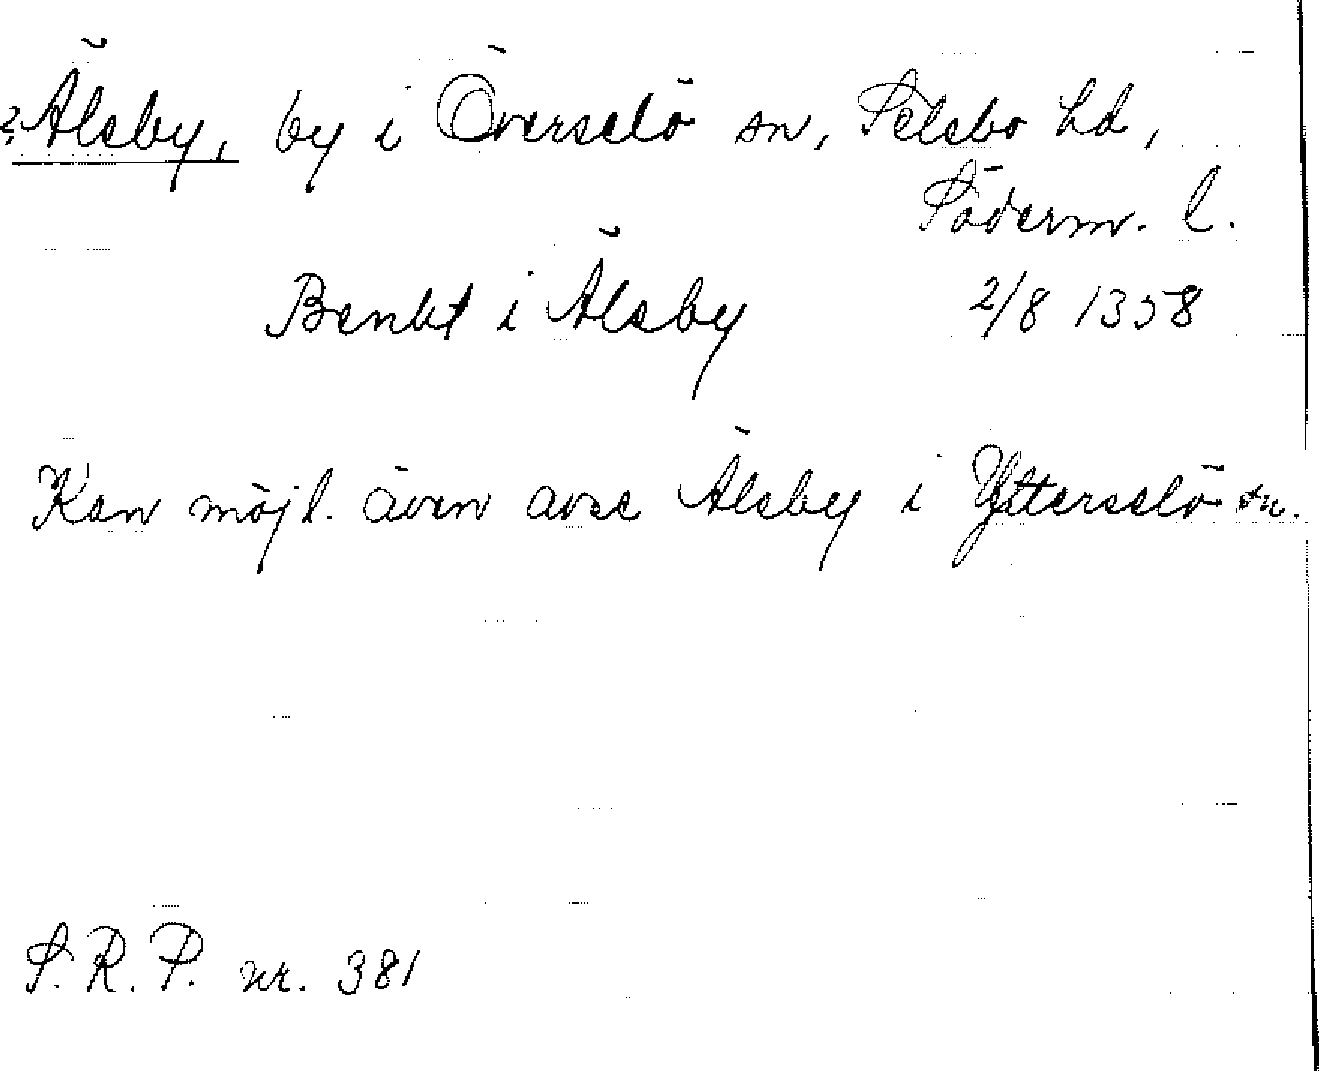 ? Älsby, by i Överselö sn, Selebo hd,
Söderm. l.
Benkt i Älsby 2/8 1358
Kan möjl. även avse Älsby i Ytterselö sn.
S. R. P. nr. 381